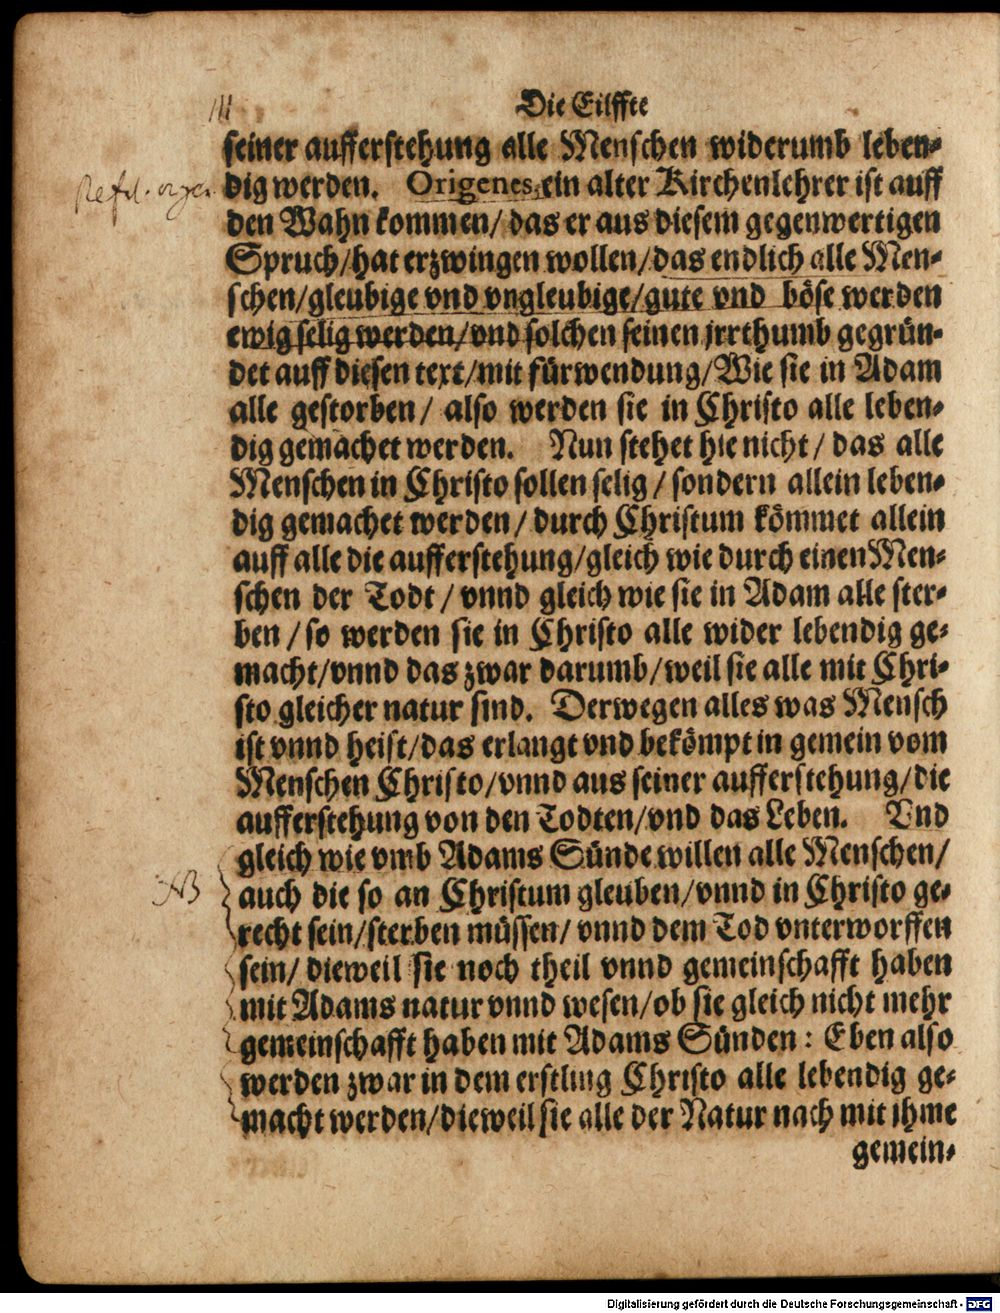 Die Eilffte
seiner aufferstehung alle Menschen widerumb leben-
dig werden. Origenes ein alter Kirchenlehrer ist auff
den Wahn kommen/ das er aus diesem gegenwertigen
Spruch/hat erzwingen wollen/das endlich alle Men-
schen/gleubige vnd vngleubige/gute vnd böse werden
ewig selig werden/vnd solchen seinen jrrthumb gegrün-
det auff diesen text/mit fürwendung/Wie sie in Adam
alle gestorben/ also werden sie in Christo alle leben-
dig gemachet werden. Nun stehet hie nicht/ das alle
Menschen in Christo sollen selig/ sondern allein leben-
dig gemachet werden/ durch Christum kömmet allein
auff alle die aufferstehung/gleich wie durch einen Men-
schen der Todt/ vnnd gleich wie sie in Adam alle ster-
ben/ so werden sie in Christo alle wider lebendig ge-
macht/vnnd das zwar darumb/weil sie alle mit Chri-
sto gleicher natur sind. Derwegen alles was Mensch
ist vnnd heist/das erlangt vnd bekömpt in gemein vom
Menschen Christo/vnnd aus seiner aufferstehung/die
aufferstehung von den Todten/vnd das Leben. Vnd
gleich wie vmb Adams Sünde willen alle Menschen/
NB
auch die so an Christum gleuben/vnnd in Christo ge-
recht sein/sterben müssen/ vnnd dem Tod vnterworffen
sein/ dieweil sie noch theil vnnd gemeinschafft haben
mit Adams natur vnnd wesen/ob sie gleich nicht mehr
gemeinschafft haben mit Adams Sünden: Eben also
werden zwar in dem erstling Christo alle lebendig ge-
macht werden/dieweil sie alle der Natur nach mit ihme
gemein-
Digitalisierung gefördert durch die Deutsche Forschungsgemeinschaft - DFG